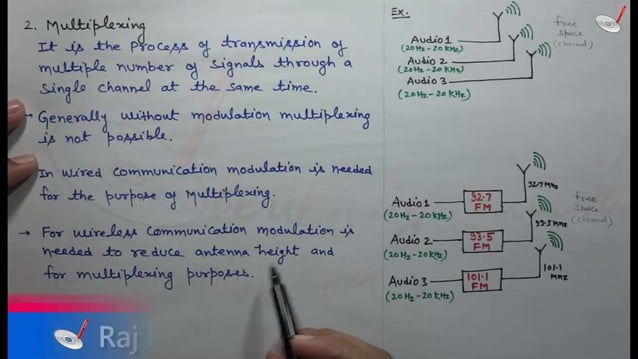 2. Multiplexing
It is the process of transmission of
multiple number of signals through a
single channel at the same time.
→ Generally without modulation multiplexing
is not possible.
In wired communication modulation is needed
for the purpose of Multiplexing.
→ For wireless communication modulation is
needed to reduce antenna height and
for multiplexing purposes.
Ex.
Audio 1
(20Hz-20KHz)
Audio 2
(20Hz-20KHz)
Audio 3
(20Hz-20KHz)
free
space
(channel)
Audio 1
(20Hz-20KHz)
92.7
FM
92.7MHz
Audio 2
(20Hz-20KHz)
93.5
FM
93.5MHz
Audio 3
(20Hz-20KHz)
101.1
FM
101.1
MHz
free
space
(channel)
Raj